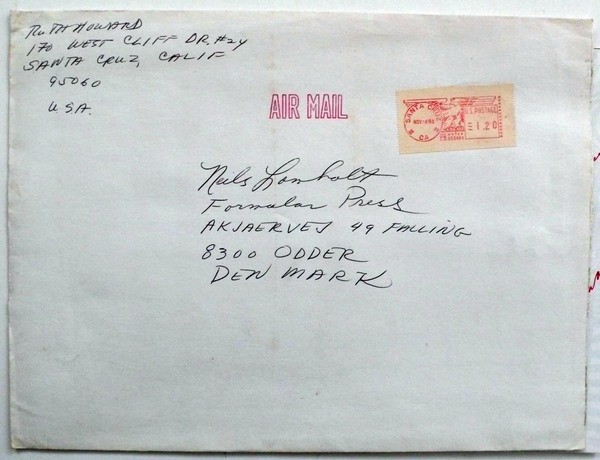 RUTH HOWARD
170 WEST CLIFF DR. #24
SANTA CRUZ, CALIF
95060
U.S.A.
AIR MAIL
SANTA
CA
U.S. POSTAGE
1.20
Niels Lomholt
Formular Press
AKJAERVEJ 49 FALLING
8300 ODDER
DENMARK